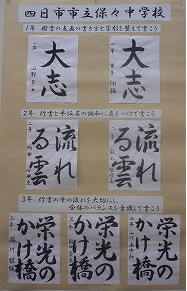 四日市市立保々中学校
1年 楷書の点画の書き方と字形を整えて書こう
大志
大志
2年 行書と平仮名の調和に気をつけて書こう
流れ
る雲
流れ
る雲
3年 行書の筆の流れを大切にし、
全体のバランスを意識して書こう
栄光の
かけ橋
栄光の
かけ橋
栄光の
かけ橋